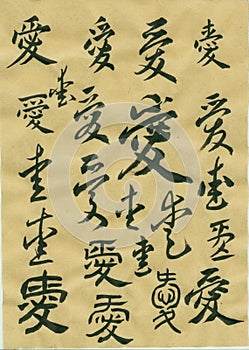 愛 愛 愛 愛
愛 愛 愛 愛 愛
愛 愛 愛 愛 愛
愛 愛 愛 愛
愛 愛 愛 愛